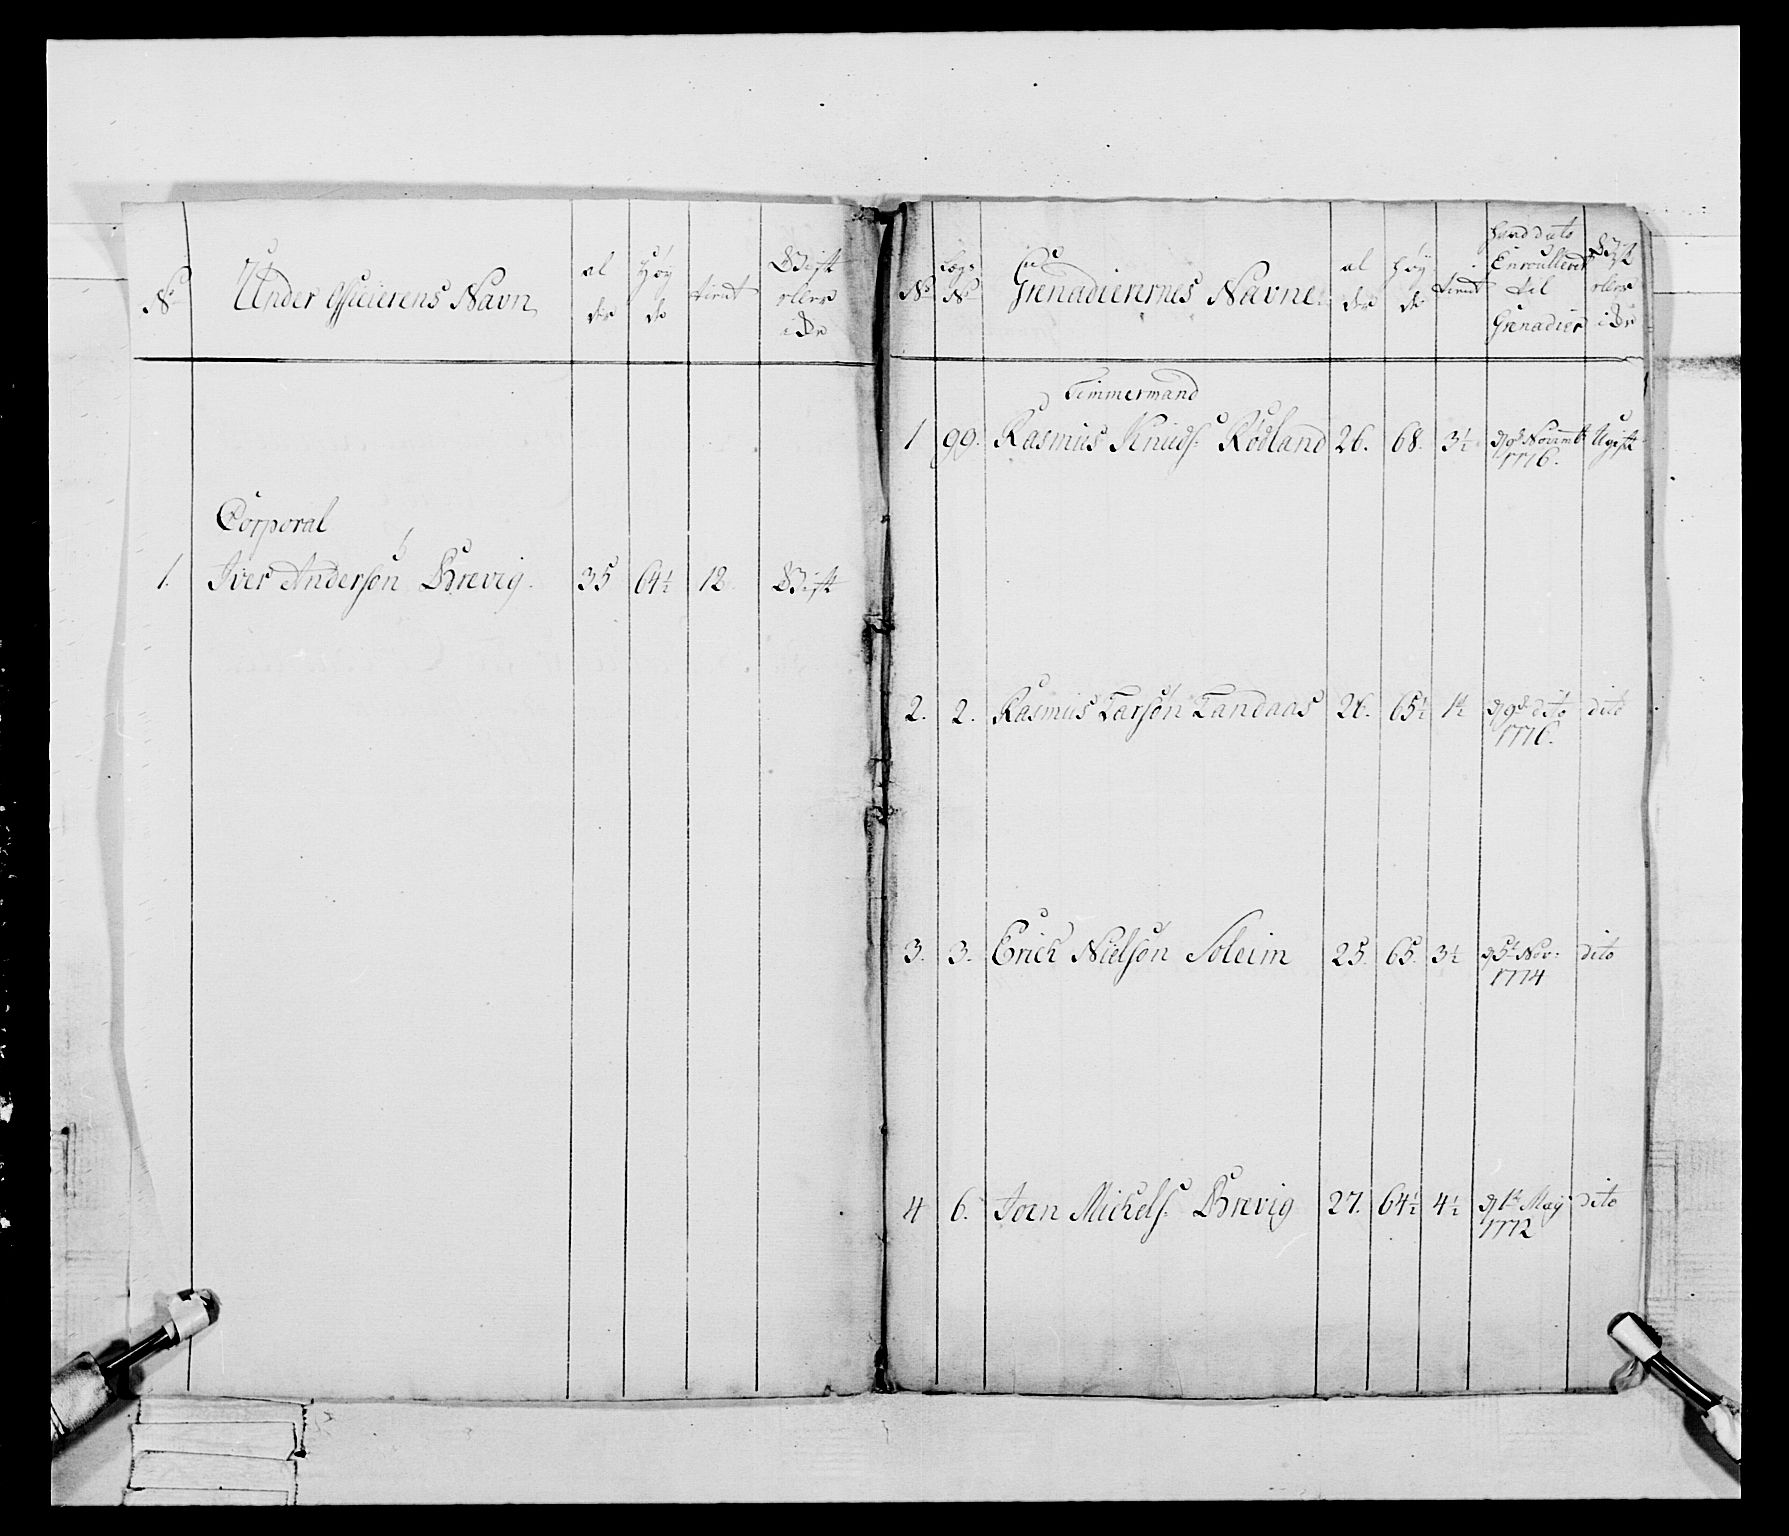 No
Under Officierens Navn
al
der
Høy
de
tient
Gift
eller
i Er
1.
Corporal
Iver Anderson Brevig.
35
64½
12.
Gift
No
Lægs
No
Grenadierernes Navne
al
der
Høy
de
tient
hvad dato
Enroullerd
til
Grenadier
Gift
eller
i Er
Timmermand
1
99.
Rasmus Knuds: Rødland
26.
68.
3½
d 9de Novemb
1776.
Ugift
2.
2.
Rasmus Larsøn Landaas
26.
65½
1½
d 9de dito
1776.
dito
3.
3.
Erick Nielsøn Soleim
25.
65.
3½
d 5te Nov:
1774
dito
4
6.
Joen Michels: Brevig
27.
64½
4½
d 1te May
1772
dito